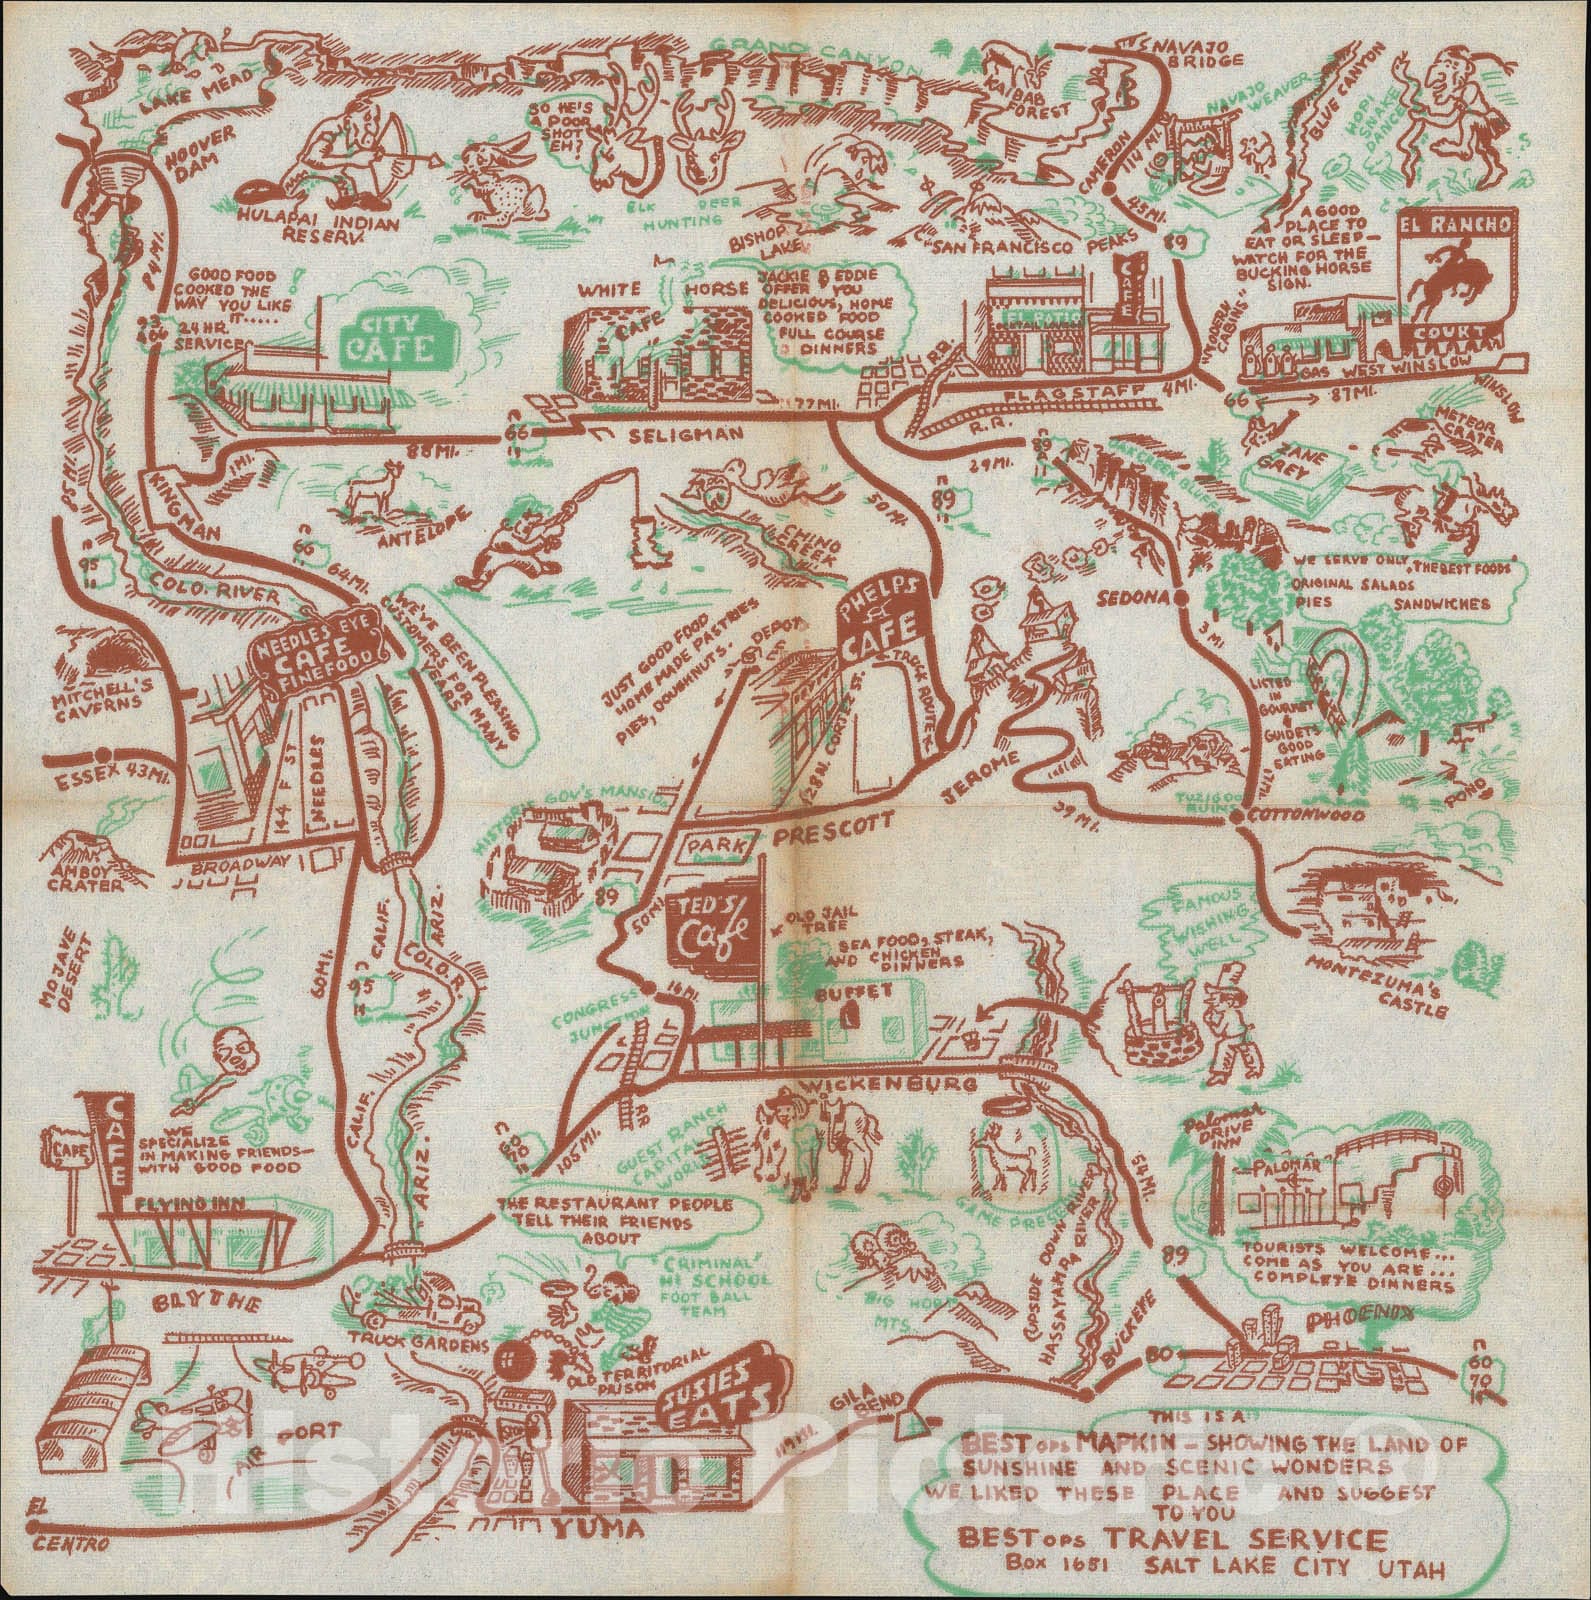 GRAND CANYON
LAKE MEAD
HOOVER
DAM
HULAPAI INDIAN
RESERV.
SO HE'S
A POOR
SHOT
EH?
ELK DEER
HUNTING
BISHOP
LAKE
KAIBAB
FOREST
NAVAJO
BRIDGE
CAMERON
114 MI.
45 MI.
89
NAVAJO
WEAVER
BLUE CANYON
HOPI
SNAKE
DANCE
SAN FRANCISCO PEAKS
A GOOD
PLACE TO
EAT OR SLEEP—
WATCH FOR THE
BUCKING HORSE
SIGN.
EL RANCHO
COURT
"MODERN
CABINS"
GAS WEST WINSLOW
WINSLOW
66
87 MI.
METEOR
CRATER
ZANE
GREY
GOOD FOOD
COOKED THE
WAY YOU LIKE
IT.....
24 HR.
SERVICE
CITY
CAFE
WHITE HORSE
CAFE
JACKIE & EDDIE
OFFER YOU
DELICIOUS, HOME
COOKED FOOD
FULL COURSE
DINNERS
EL PATIO
COCKTAIL LOUNGE
CAFE
R.R.
FLAGSTAFF 4 MI.
R.R.
77 MI.
SELIGMAN
66
88 MI.
1 MI.
KINGMAN
ANTELOPE
66
64 MI.
COLO. RIVER
95
CHINO
CREEK
50 MI.
89
29 MI.
89
OAK CREEK BLUFFS
SEDONA
3 MI.
WE SERVE ONLY "THE BEST FOODS"
ORIGINAL SALADS
PIES SANDWICHES
LISTED
IN
GOURMET
&
GUIDETS
GOOD
EATING
POND
COTTONWOOD
TUZIGOOT
RUINS
JEROME
39 MI.
MITCHELL'S
CAVERNS
ESSEX 43 MI.
NEEDLES EYE
CAFE
FINE FOOD
WE'VE BEEN PLEASING
CUSTOMERS FOR MANY
YEARS
144 F ST
NEEDLES
BROADWAY
AMBOY
CRATER
MOJAVE
DESERT
JUST GOOD FOOD
HOME MADE PASTRIES
PIES, DOUGHNUTS.
DEPOT
PHELPS
CAFE
128 N. CORTEZ ST.
TRUCK ROUTE
HISTORIC GOV'S MANSION
PARK
PRESCOTT
89
50 MI.
TED'S
Cafe
OLD JAIL
TREE
SEA FOOD, STEAK,
AND CHICKEN
DINNERS
BUFFET
FAMOUS
WISHING
WELL
MONTEZUMA'S
CASTLE
60 MI.
CALIF.
ARIZ.
95
COLO. R.
CONGRESS
JUNCTION
16 MI.
WICKENBURG
RR
60
70
105 MI.
GUEST RANCH
CAPITAL OF
WORLD
GAME PRESERVE
CALIF.
ARIZ.
CAFE
CAFE
WE
SPECIALIZE
IN MAKING FRIENDS—
WITH GOOD FOOD
FLYING INN
BLYTHE
THE RESTAURANT PEOPLE
TELL THEIR FRIENDS
ABOUT
'CRIMINAL'
HI SCHOOL
FOOT BALL
TEAM
TRUCK GARDENS
OLD TERRITORIAL
PRISON
BIG HORN
MTS.
(UPSIDE DOWN RIVER)
HASSAYAMPA RIVER
54 MI.
89
BUCKEYE
Palomar
DRIVE
INN
PALOMAR
TOURISTS WELCOME...
COME AS YOU ARE...
COMPLETE DINNERS
PHOENIX
80
60
70
AIR PORT
EL
CENTRO
SUSIES
EATS
YUMA
GILA
BEND
THIS IS A
BESTops MAPKIN — SHOWING THE LAND OF
SUNSHINE AND SCENIC WONDERS
WE LIKED THESE PLACE AND SUGGEST
TO YOU
BESTops TRAVEL SERVICE
BOX 1651 SALT LAKE CITY UTAH
Historic Pictoric ®